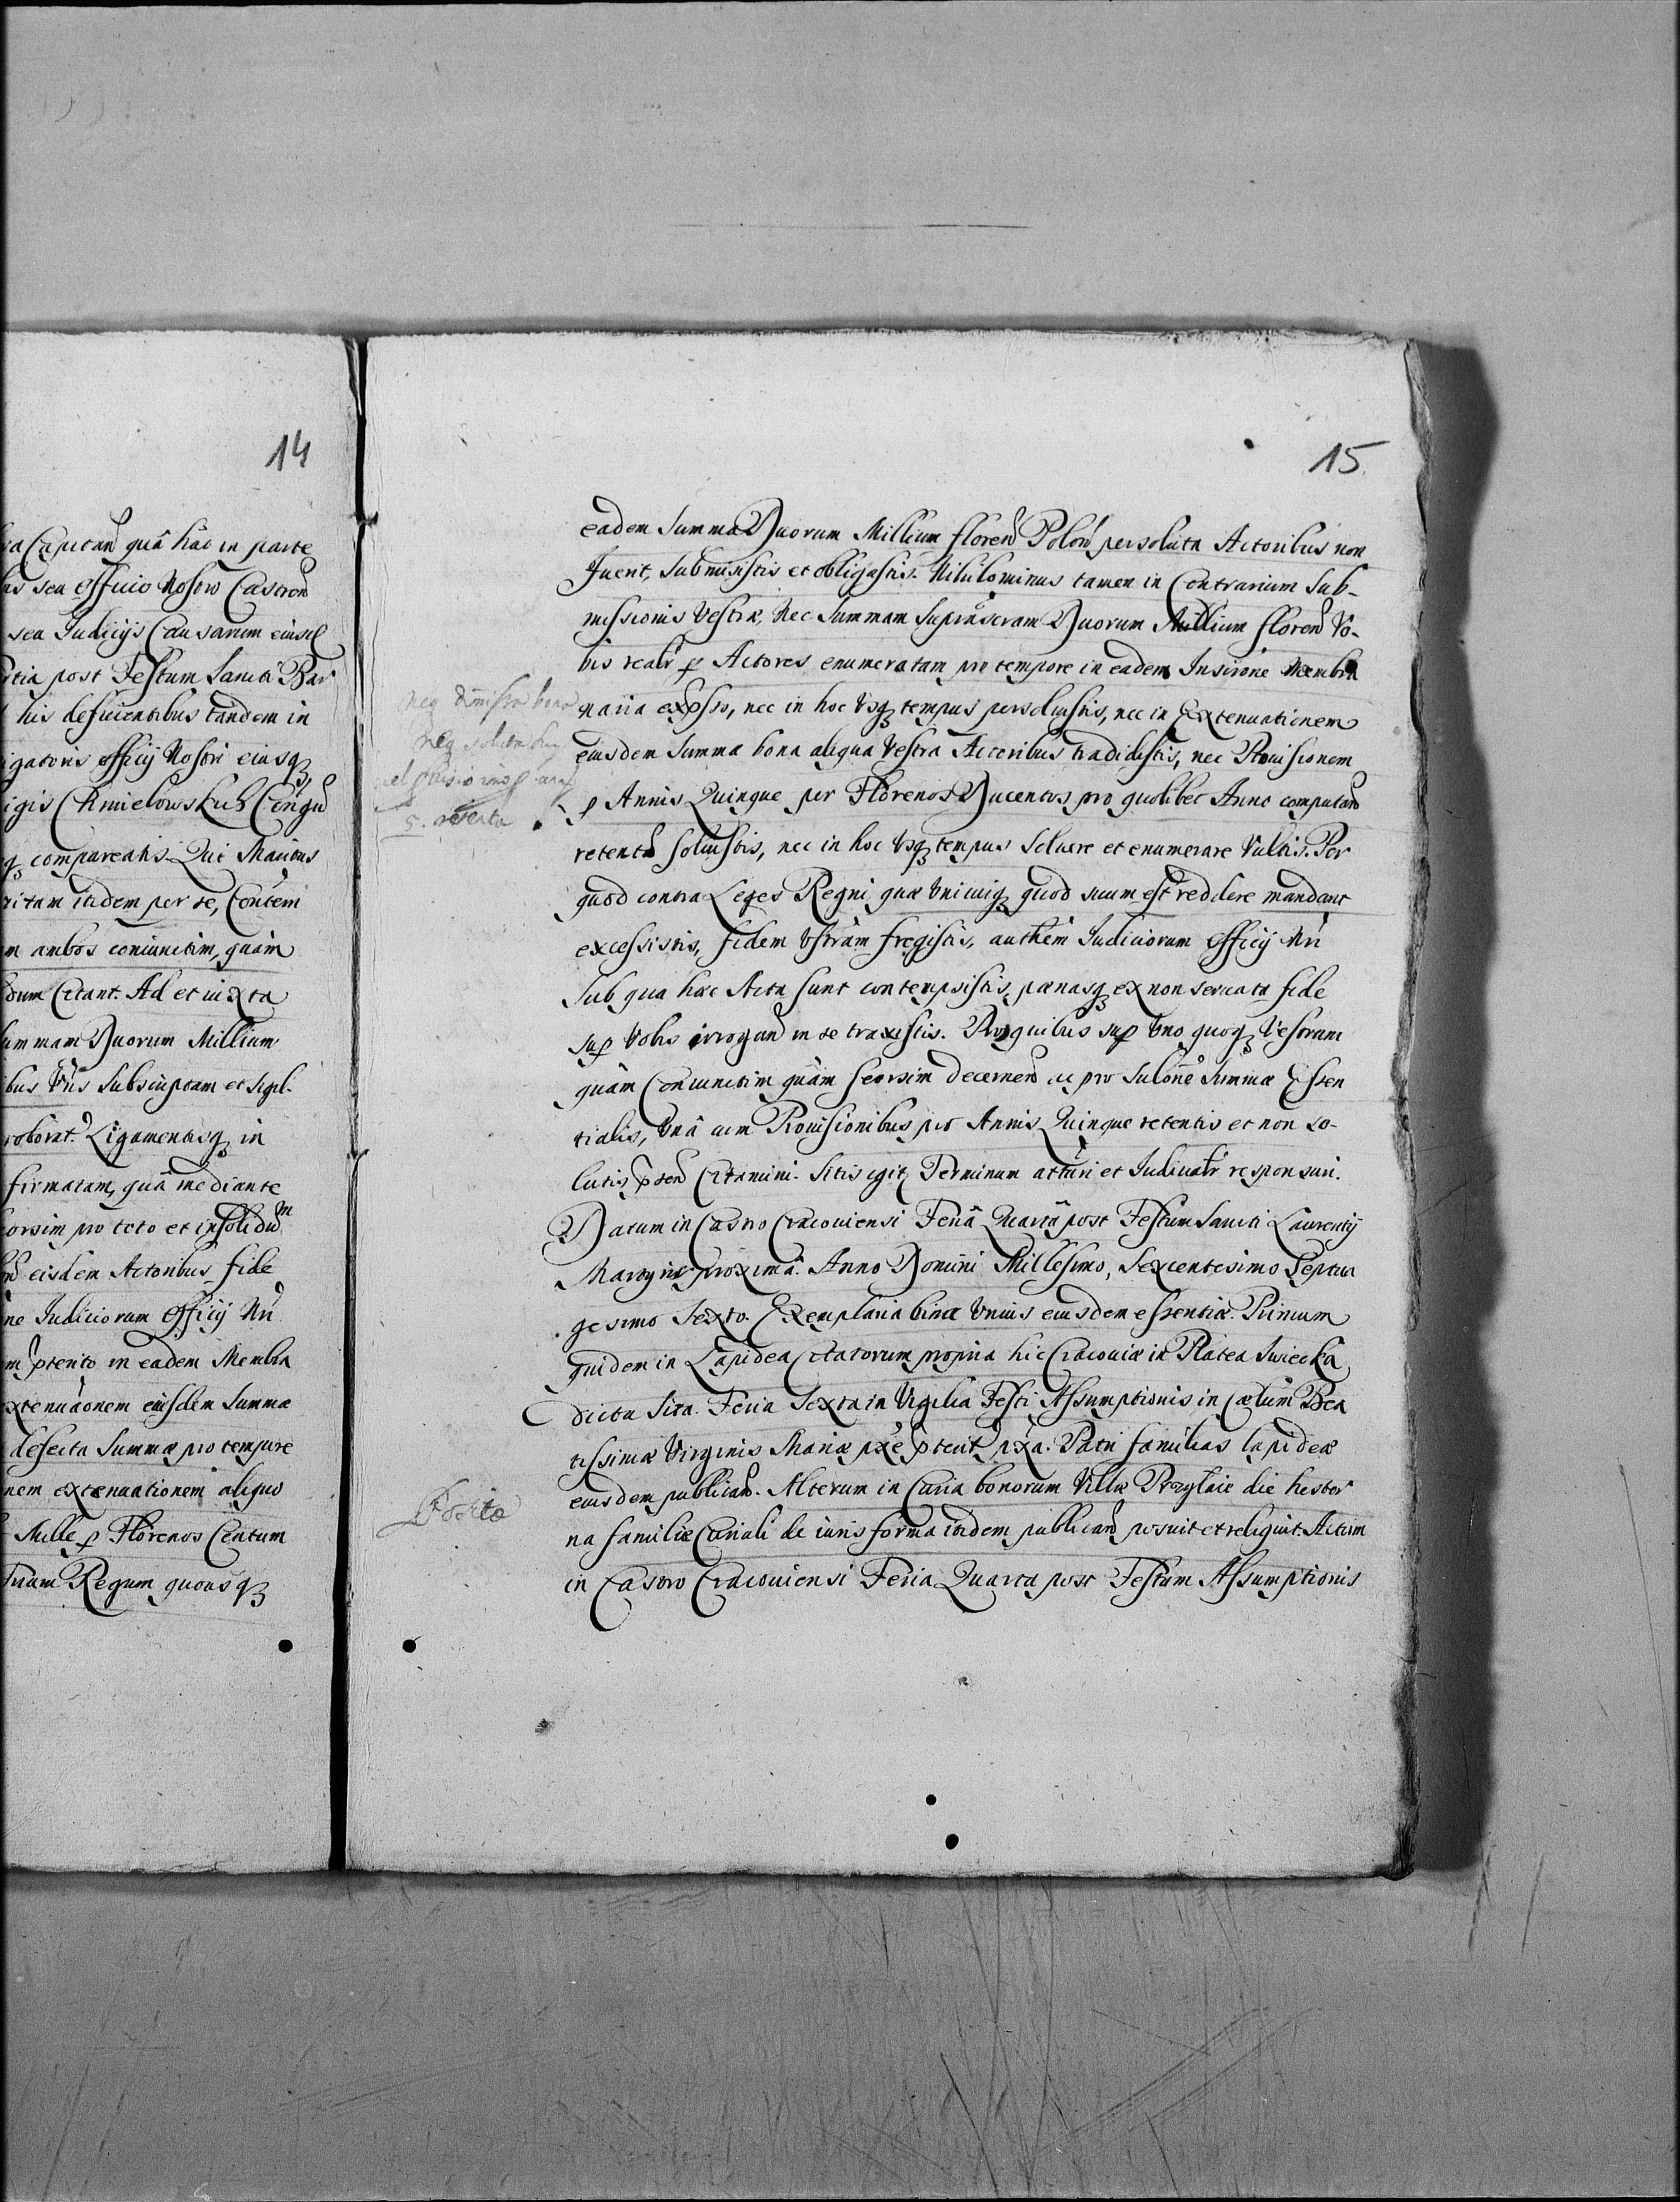 14
Capitan quâ hâc in parte
seu officio Nostro Castren
seu Judicijs Causarum eiusd
post Festum Sancti Bar
his deficientibus tandem in
officij Nostri eiusq3
Chmielowskich Congu
compareatis. Qui Maiious
itidem per se, Contem
ambos coniunctim, quâm
Citant. Ad et iuxta
Duorum Millium
Vris Subscriptam et Sigil
roborat. Ligamentisq3 in
firmatam, quâ mediante
pro toto et insolidum
eisdem Actoribus fide
Judiciorum Officij Nri
ptento in eadem Membra
eiusdem Summæ
Summæ pro tempore
extenuationem aliquo
Mille p Florenos Centum
Regum quousq3
15
eadem Summa Duorum Millium floren Polon persoluta Actoribus non
fuerit, Submisistis et obligastis. Nihilominus tamen in Contrarium Sub-
missionis Vestræ, Nec Summam Suprascram Duorum Millium floren Vo-
bis realr p Actores enumeratam pro tempore in eadem Inscrone Membra
naria expsso, nec in hoc Vsq3 tempus persoluistis, nec in Extenuationem
eiusdem Summæ bona aliqua Vestra Actoribus tradidistis, nec Prouisionem
p Annis Quinque per Florenos Ducentos pro quolibet Anno computan
retentâ soluistis, nec in hoc Vsq3 tempus Soluere et enumerare Vultis. Per
quod contra Leges Regni quæ Vnicuiq3 quod suum est reddere mandant
excessistis, fidem Vstram fregistis, authem Judiciorum Officij Nri
Sub qua hæc Acta sunt contempsistis, pænasq3 ex non seruata fide
sup Vobis irrogan in se traxistis. Pro quibus sup Vno quoq3 Vestrum
quâm Coniunctim quâm seorsim decernen ac pro Sulone Summæ Essen
tialis, Vnâ cum Prouisionibus pro Annis Quinque retentis et non so-
lutis pten Citamini. Sitis igit Terminum atturi et Judicialr responsuri.
Datum in Castro Cracouiensi Feriâ Quartâ post Festum Sancti Laurentij
Martyris proximâ. Anno Domini Millesimo, Sexcentesimo Septua
gesimo Sexto. Exemplaria bina Vnius eiusdem essentiæ. Primum
quidem in Lapidea Citatorum propria hic Cracouiæ in Platea Swiecka
dicta Sita. Feria Sexta in Vigilia Festi Assumptionis in Cælum Bea
tissimæ Virginis Mariæ pxe pterit pxa. Patri familias lapideæ
eiusdem publican. Alterum in Curia bonorum Villæ die hester
na familiæ Curiali de iuris forma itidem publican posuit et reliquit. Actum
in Castro Cracouiensi Feria Quarta post Festum Assumptionis
neq bona
neq soluta
5. retenta